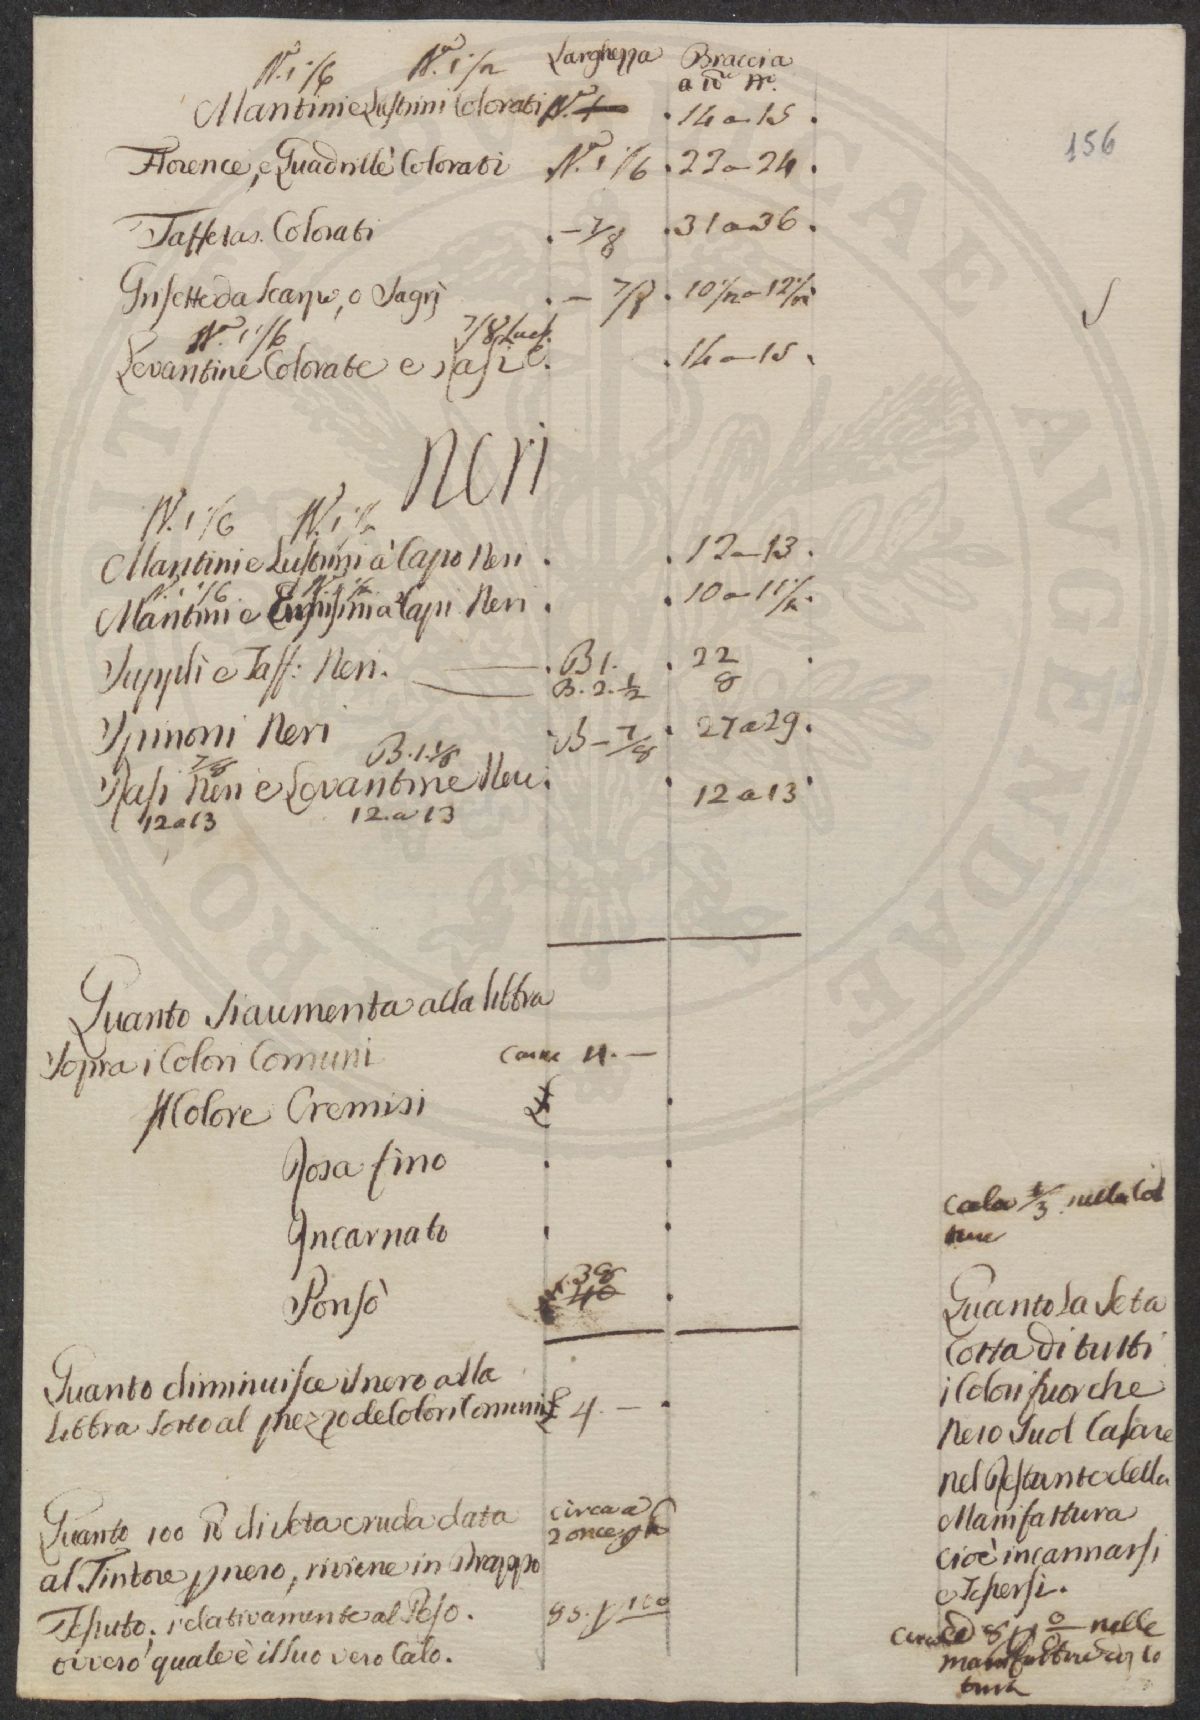 N.º 1 1/6 N.º 1 1/2 Larghezza Braccia
a
Mantini e Lustrini Colorati N.º 1 . 14 a 15 .
156
Florence, e Quadrillè Colorati N.º 1 1/6 . 22 a 24 .
Taffetas. Colorati . - 7/8 . 31 a 36 .
Grisette da Scarpe, o Sagrj . - 7/8 . 10 1/2 a 12 1/2
N.º 1 1/6 7/8
Levantine Colorate e Rasi . 14 a 15 .
Neri
N. 1 1/6 N. 1 1/2
Mantini e Lustrini à Capo Neri . . 12 a 13 .
Mantini e à Capi Neri . . 10 a 11 1/2 .
Supplì e Taff: Neri. . B 1. . 22 .
B. 2. 1/2 8
Spinoni Neri . B - 7/8 . 27 a 29 .
7/8 B. 1. 1/8
Rasi Neri e Levantine Nere . . 12 a 13
12 a 13 12 a 13
Quanto si aumenta alla libbra
Sopra i Colori Comuni 4. —
Il Colore Cremisi £ .
Rosa fino . .
Incarnato . .
38
Ponsò 40 .
Quanto diminuisce il nero alla
libbra sotto al prezzo de Colori Comuni £ 4. — .
Quanto 100 di Seta cruda data circa a
al Tintore p nero, riviene in Drappo 2 once
Tessuto, relativamente al Peso. 85. p 100
ovvero quale è il suo vero Calo.
Cala 1/3 nella
Quanto la Seta
Cotta di tutti
i Colori fuor che
Nero Suol Calare
nel Restante della
Manifattura
cioè incannarsi
e Tessersi.
circa 8 p º nelle
manifatture